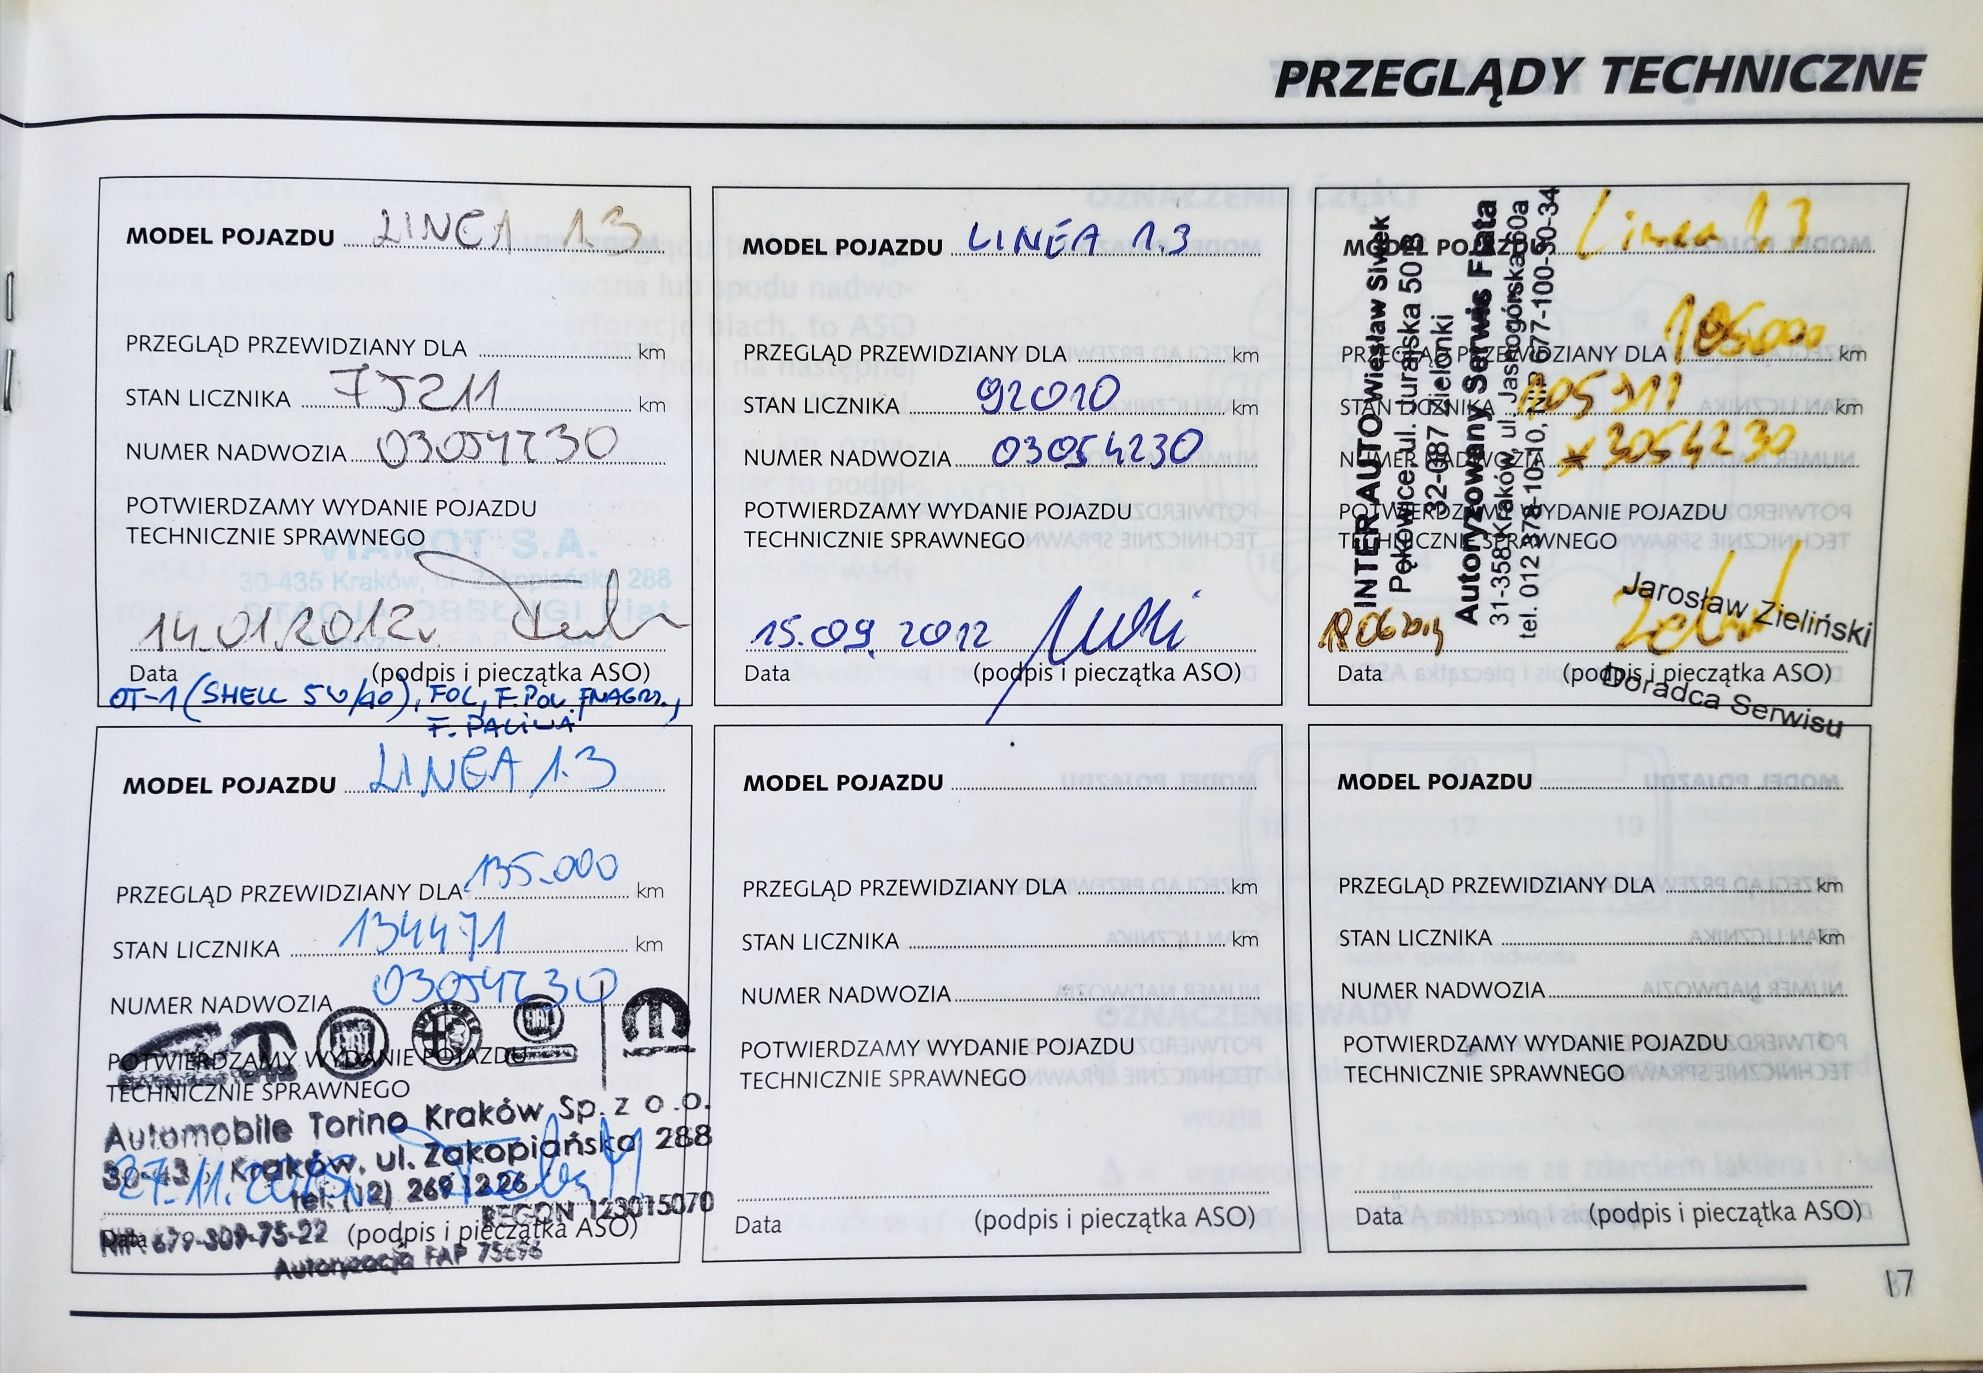 PRZEGLĄDY TECHNICZNE
MODEL POJAZDU LINEA 1.3
PRZEGLĄD PRZEWIDZIANY DLA km
STAN LICZNIKA 75211 km
NUMER NADWOZIA 03054230
POTWIERDZAMY WYDANIE POJAZDU
TECHNICZNIE SPRAWNEGO
VIAMOT S.A.
30-435 Kraków, ul. Zakopiańska 288
STACJA OBSŁUGI Fiat
14.01.2012r.
Data (podpis i pieczątka ASO)
OT-1 (SHELL 5W/40), FOL, F. POW. NAGRZ.,
F. PALIWA
MODEL POJAZDU LINEA 1.3
PRZEGLĄD PRZEWIDZIANY DLA km
STAN LICZNIKA 92010 km
NUMER NADWOZIA 03054230
POTWIERDZAMY WYDANIE POJAZDU
TECHNICZNIE SPRAWNEGO
15.09.2012
Data (podpis i pieczątka ASO)
MODEL POJAZDU Linea 1.3
PRZEGLĄD PRZEWIDZIANY DLA 105000 km
STAN LICZNIKA 105911 km
NUMER NADWOZIA *3054230
POTWIERDZAMY WYDANIE POJAZDU
TECHNICZNIE SPRAWNEGO
INTER AUTO Wiesław Siwek
Pękowice, ul. Jurajska 50 B
32-087 Zielonki
Autoryzowany Serwis Fiata
31-358 Kraków, ul. Jasnogórska 60a
tel. 012 378-10-10, 677-100-30-34
18 06 2014
Jarosław Zieliński
Doradca Serwisu
Data (podpis i pieczątka ASO)
MODEL POJAZDU LINEA 1.3
PRZEGLĄD PRZEWIDZIANY DLA 135.000 km
STAN LICZNIKA 134471 km
NUMER NADWOZIA 03054230
MOPAR
POTWIERDZAMY WYDANIE POJAZDU
TECHNICZNIE SPRAWNEGO
Automobile Torino Kraków Sp. z o.o.
Kraków, ul. Zakopiańska 288
tel. (12) 269 12 26
27.11.
REGON 123015070
NIP: 679-309-75-22
Data (podpis i pieczątka ASO)
Autoryzacja FAP 75696
MODEL POJAZDU
PRZEGLĄD PRZEWIDZIANY DLA km
STAN LICZNIKA km
NUMER NADWOZIA
POTWIERDZAMY WYDANIE POJAZDU
TECHNICZNIE SPRAWNEGO
Data (podpis i pieczątka ASO)
MODEL POJAZDU
PRZEGLĄD PRZEWIDZIANY DLA km
STAN LICZNIKA km
NUMER NADWOZIA
POTWIERDZAMY WYDANIE POJAZDU
TECHNICZNIE SPRAWNEGO
Data (podpis i pieczątka ASO)
17